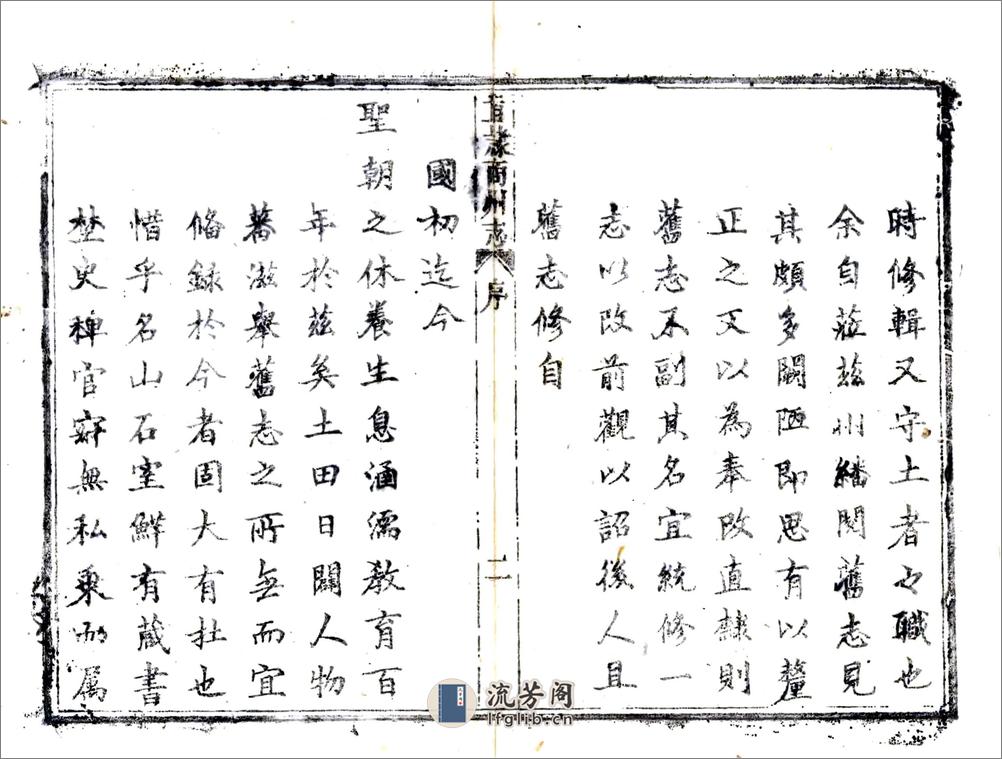 時修輯又守土者之職也
余自蒞茲州繙閱舊志見
其頗多闕陋即思有以釐
正之又以為奉改直隸則
舊志不副其名宜統修一
志以改前觀以詔後人且
舊志修自
直隸商州志 序 二
國初迄今
聖朝之休養生息涵濡教育百
年於茲矣土田日闢人物
蕃滋舉舊志之所無而宜
俻録於今者固大有在也
惜乎名山石室鮮有蔵書
埜史稗官寂無私乘而属
流芳阁
lfglib.cn